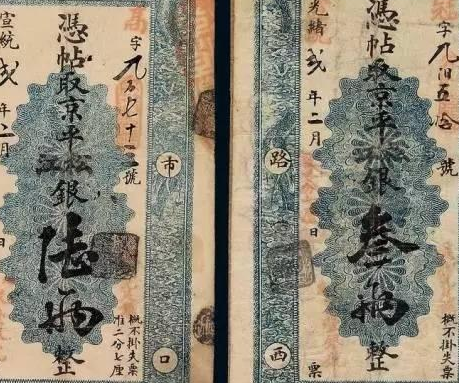 字九佰五拾號
憑帖取京平松江銀叁兩整
概不掛失票
光緒貳年二月日
路西
字七十號
憑帖取京平松江銀陸兩整
概不掛失票
准二分七厘
宣統貳年二月日
市口